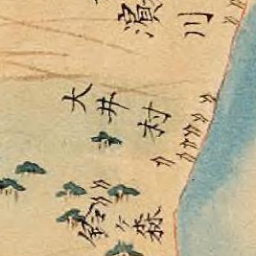 濱川
大井村
鈴ヶ森